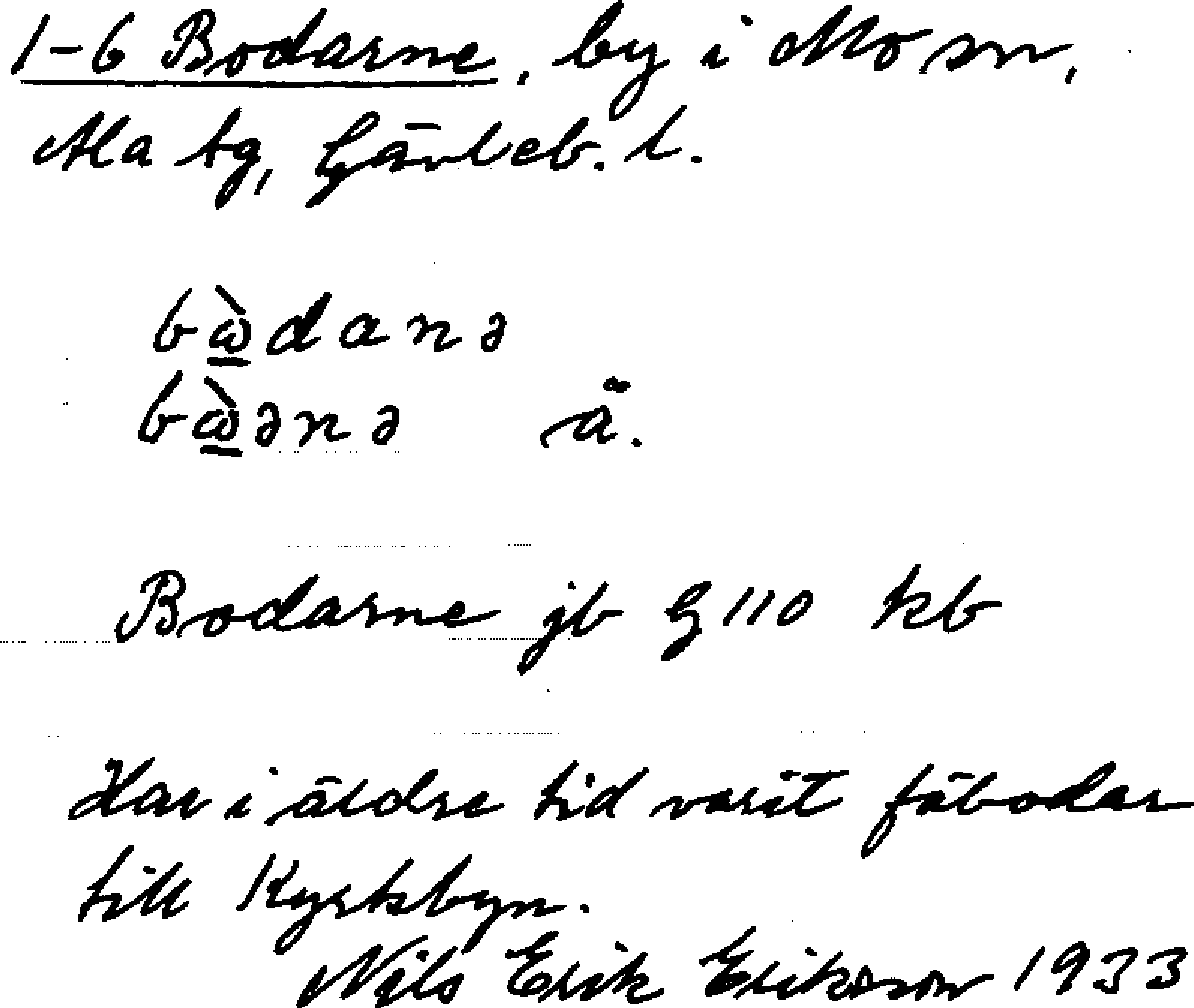 1-6 Bodarne, by i Mo sn,
Ala tg, Gävleb. l.
bὼ̱danə
bὼ̱ənə ä.
Bodarne jb G 110 kb
Har i äldre tid varit fäbodar
till Kyrkbyn.
Nils Erik Eriksson 1933